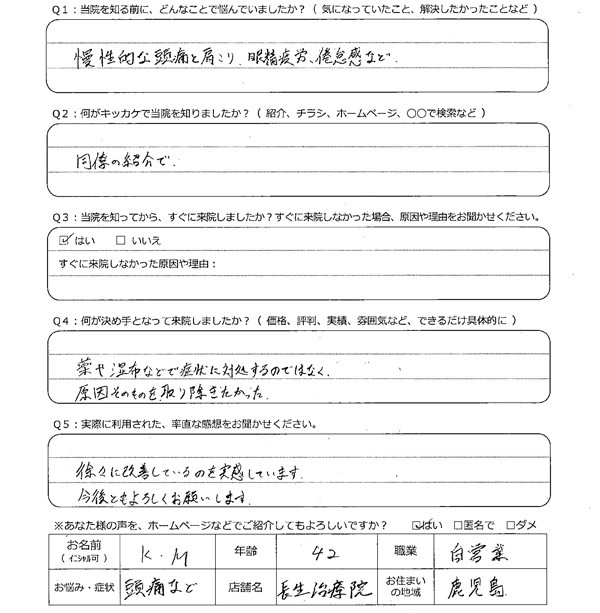 Q1：当院を知る前に、どんなことで悩んでいましたか？（ 気になっていたこと、解決したかったことなど ）
慢性的な頭痛と肩こり、眼精疲労、倦怠感など.
Q2：何がキッカケで当院を知りましたか？（ 紹介、チラシ、ホームページ、〇〇で検索など ）
同僚の紹介で.
Q3：当院を知ってから、すぐに来院しましたか？すぐに来院しなかった場合、原因や理由をお聞かせください。
☑ はい □ いいえ
すぐに来院しなかった原因や理由：
Q4：何が決め手となって来院しましたか？（ 価格、評判、実績、雰囲気など、できるだけ具体的に ）
薬や湿布などで症状に対処するのではなく、
原因そのものを取り除きたかった.
Q5：実際に利用された、率直な感想をお聞かせください。
徐々に改善しているのを実感しています.
今後ともよろしくお願いします.
※あなた様の声を、ホームページなどでご紹介してもよろしいですか？ ☑はい □匿名で □ダメ
お名前 K.M 年齢 42 職業 自営業
（ｲﾆｼｬﾙ可）
お悩み・症状 頭痛など 店舗名 長生治療院 お住まいの地域 鹿児島